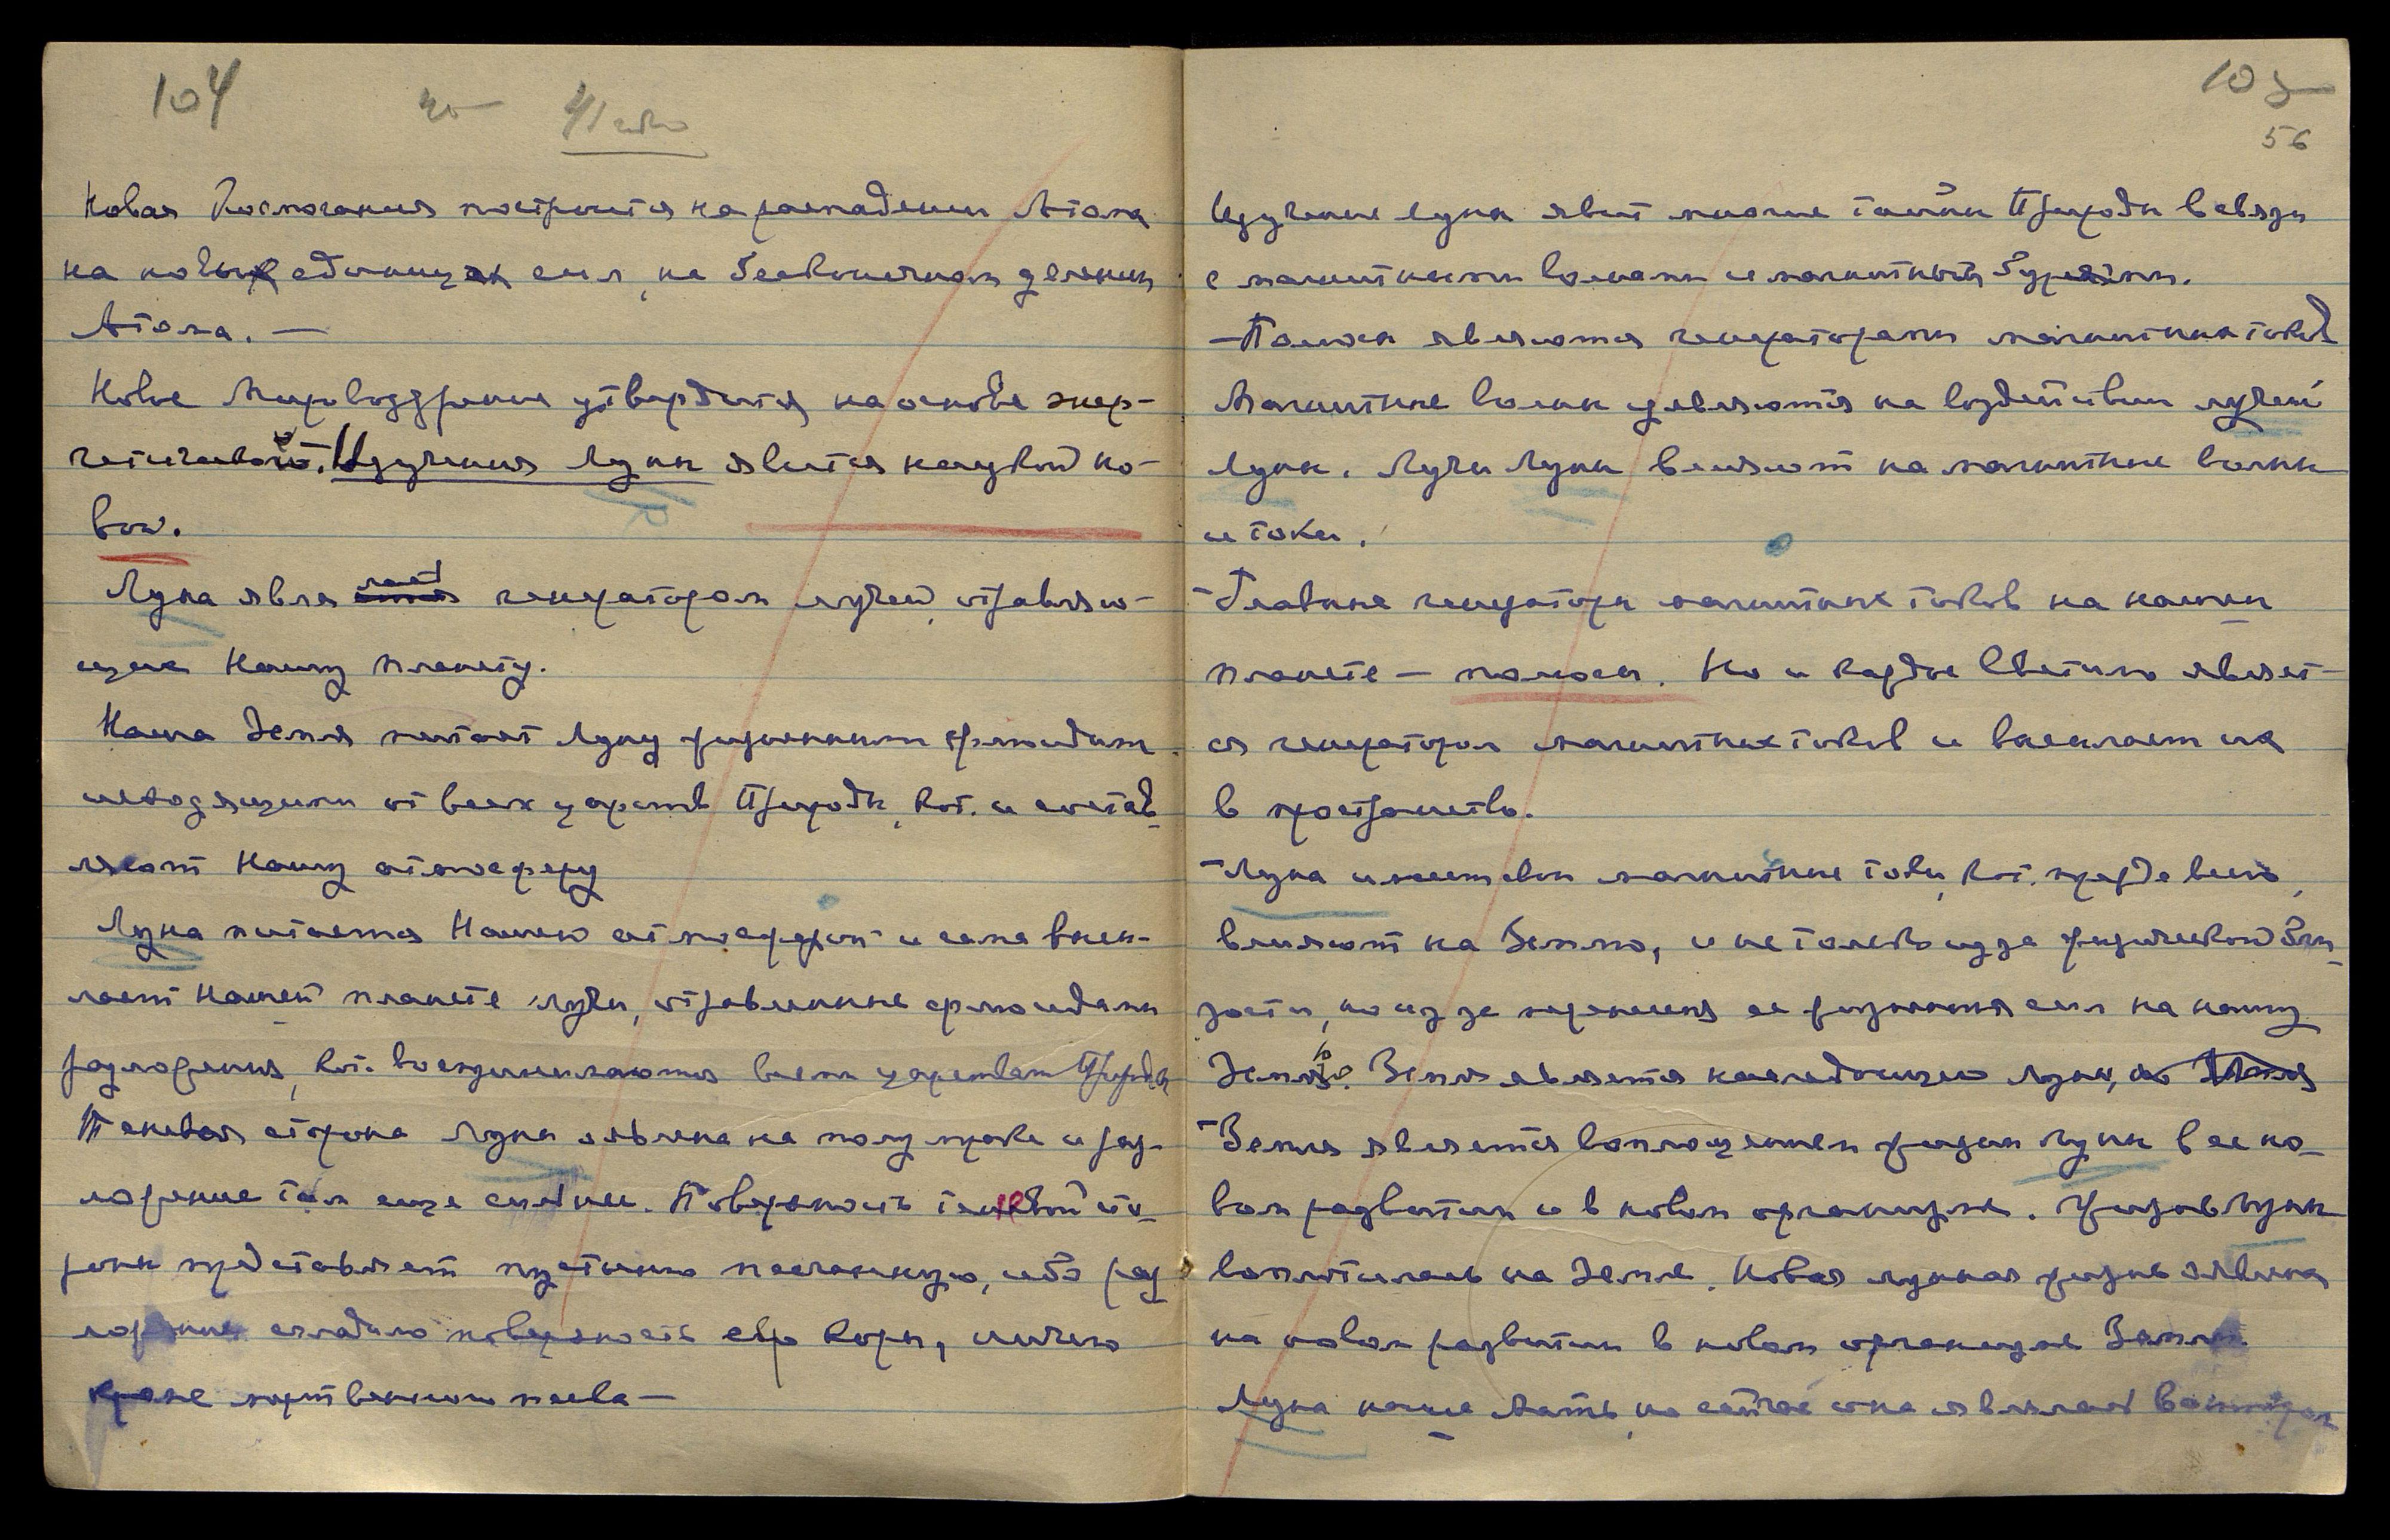 104
Новая Космогония построится на распадении Атома
на новых единицах сил, на бесконечном делении
Атома. —
Новое Мировоззрение утвердится на основе энер-
гетической. Изучения Луны явится наукой но-
вой.
Луна являет генератором лучей, отравляю-
щих Нашу планету.
Наша Земля питает Луну жизненными флюидами
исходящими от всех царств Природы, кот. и состав-
ляют Нашу атмосферу
Луна питается Нашею атмосферой и сама высы-
лает Нашей планете лучи, отравленные флюидами
разложения, кот. воспринимаются всеми царствами Природы
Теневая сторона Луны явлена на полумраке и раз-
ложение там еще сильнее. Поверхность теневой сто-
роны представляет пустыню песчаную, ибо раз
ложение сгладило поверхность ее коры, ничего
кроме мертвенного песка —
105
56
Изучение луны явит многие тайны Природы в связи
с магнитными волнами и магнитными бурями.
— Полюсы являются генераторами магнитных токов
Магнитные волны усиляются на воздействии лучей
Луны. Лучи Луны влияют на магнитные волны
и токи.
— Главные генераторы магнитных токов на нашей
планете — полюсы. Но и каждое Светило являет-
ся генератором магнитных токов и высылает их
в пространство.
— Луна имеет свои магнитные токи, кот. прежде всего,
влияют на Землю, и не только из за физической бли-
зости, но из за перенесения ее жизненных сил на нашу
Землю. Земля является наследницею Луны,
— Земля является воплощением жизни Луны в ее но-
вом развитии и в новом организме. Жизнь Луны
воплотилась на Земле. Новая лунная жизнь явлена
на новом развитии в новом организме Земли.
Луна наша Мать, но сейчас она являлась вампиром